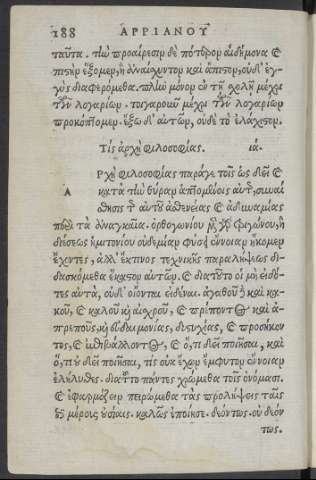 188 ΑΡΡΙΑΝΟΥ
ταῦτα. τὴν προαίρεσιν δὲ πότερον αἰδήμονα καὶ
πιστὴν ἕξομεν, ἢ ἀναίσχυντον καὶ ἄπιστον, οὐδ' ἐγ-
γὺς διαφερόμεθα. πλὴν μόνον ἐν τῇ σχολῇ μέχρι
τῶν λογαρίων. τοιγαροῦν μέχρι τῶν λογαρίων
προκόπτομεν. ἔξω δ' αὐτῶν, οὐδὲ τὸ ἐλάχιστον.
Τίς ἀρχὴ φιλοσοφίας. ια.
Α ΡΧὴ φιλοσοφίας παρά γε τοῖς ὡς δεῖ καὶ
κατὰ τὴν θύραν ἁπτομένοις αὐτῆς, συναί
σθησις τῆς αὑτοῦ ἀσθενείας καὶ ἀδυναμίας
περὶ τὰ ἀναγκαῖα. ὀρθογωνίου μὲν γὰρ τριγώνου, ἢ
διέσεως ἡμιτονίου οὐδεμίαν φύσει ἔννοιαν ἥκομεν
ἔχοντες, ἀλλ' ἔκ τινος τεχνικῆς παραλήψεως δι-
δασκόμεθα ἕκαστον αὐτῶν. καὶ διὰ τοῦτο οἱ μὴ εἰδό-
τες αὐτὰ, οὐδ' οἴονται εἰδέναι. ἀγαθοῦ δὲ καὶ κα-
κοῦ, καὶ καλοῦ καὶ αἰσχροῦ, καὶ πρέποντος καὶ ἀ-
πρεποῦς, καὶ εὐδαιμονίας, δυστυχίας, καὶ προσήκον-
τος, καὶ ἐπιβάλλοντος, καὶ ὅ, τι δεῖ ποιῆσαι, καὶ
ὅ, τι οὐ δεῖ ποιῆσαι, τίς οὐκ ἔχων ἔμφυτον ἔννοιαν
ἐλήλυθε. διὰ τοῦτο πάντες χρώμεθα τοῖς ὀνόμασι.
καὶ ἐφαρμόζειν πειρώμεθα τὰς προλήψεις ταῖς
ἐπὶ μέρους οὐσίαις. καλῶς ἐποίησε. δεόντως. οὐ δεόν
τως.